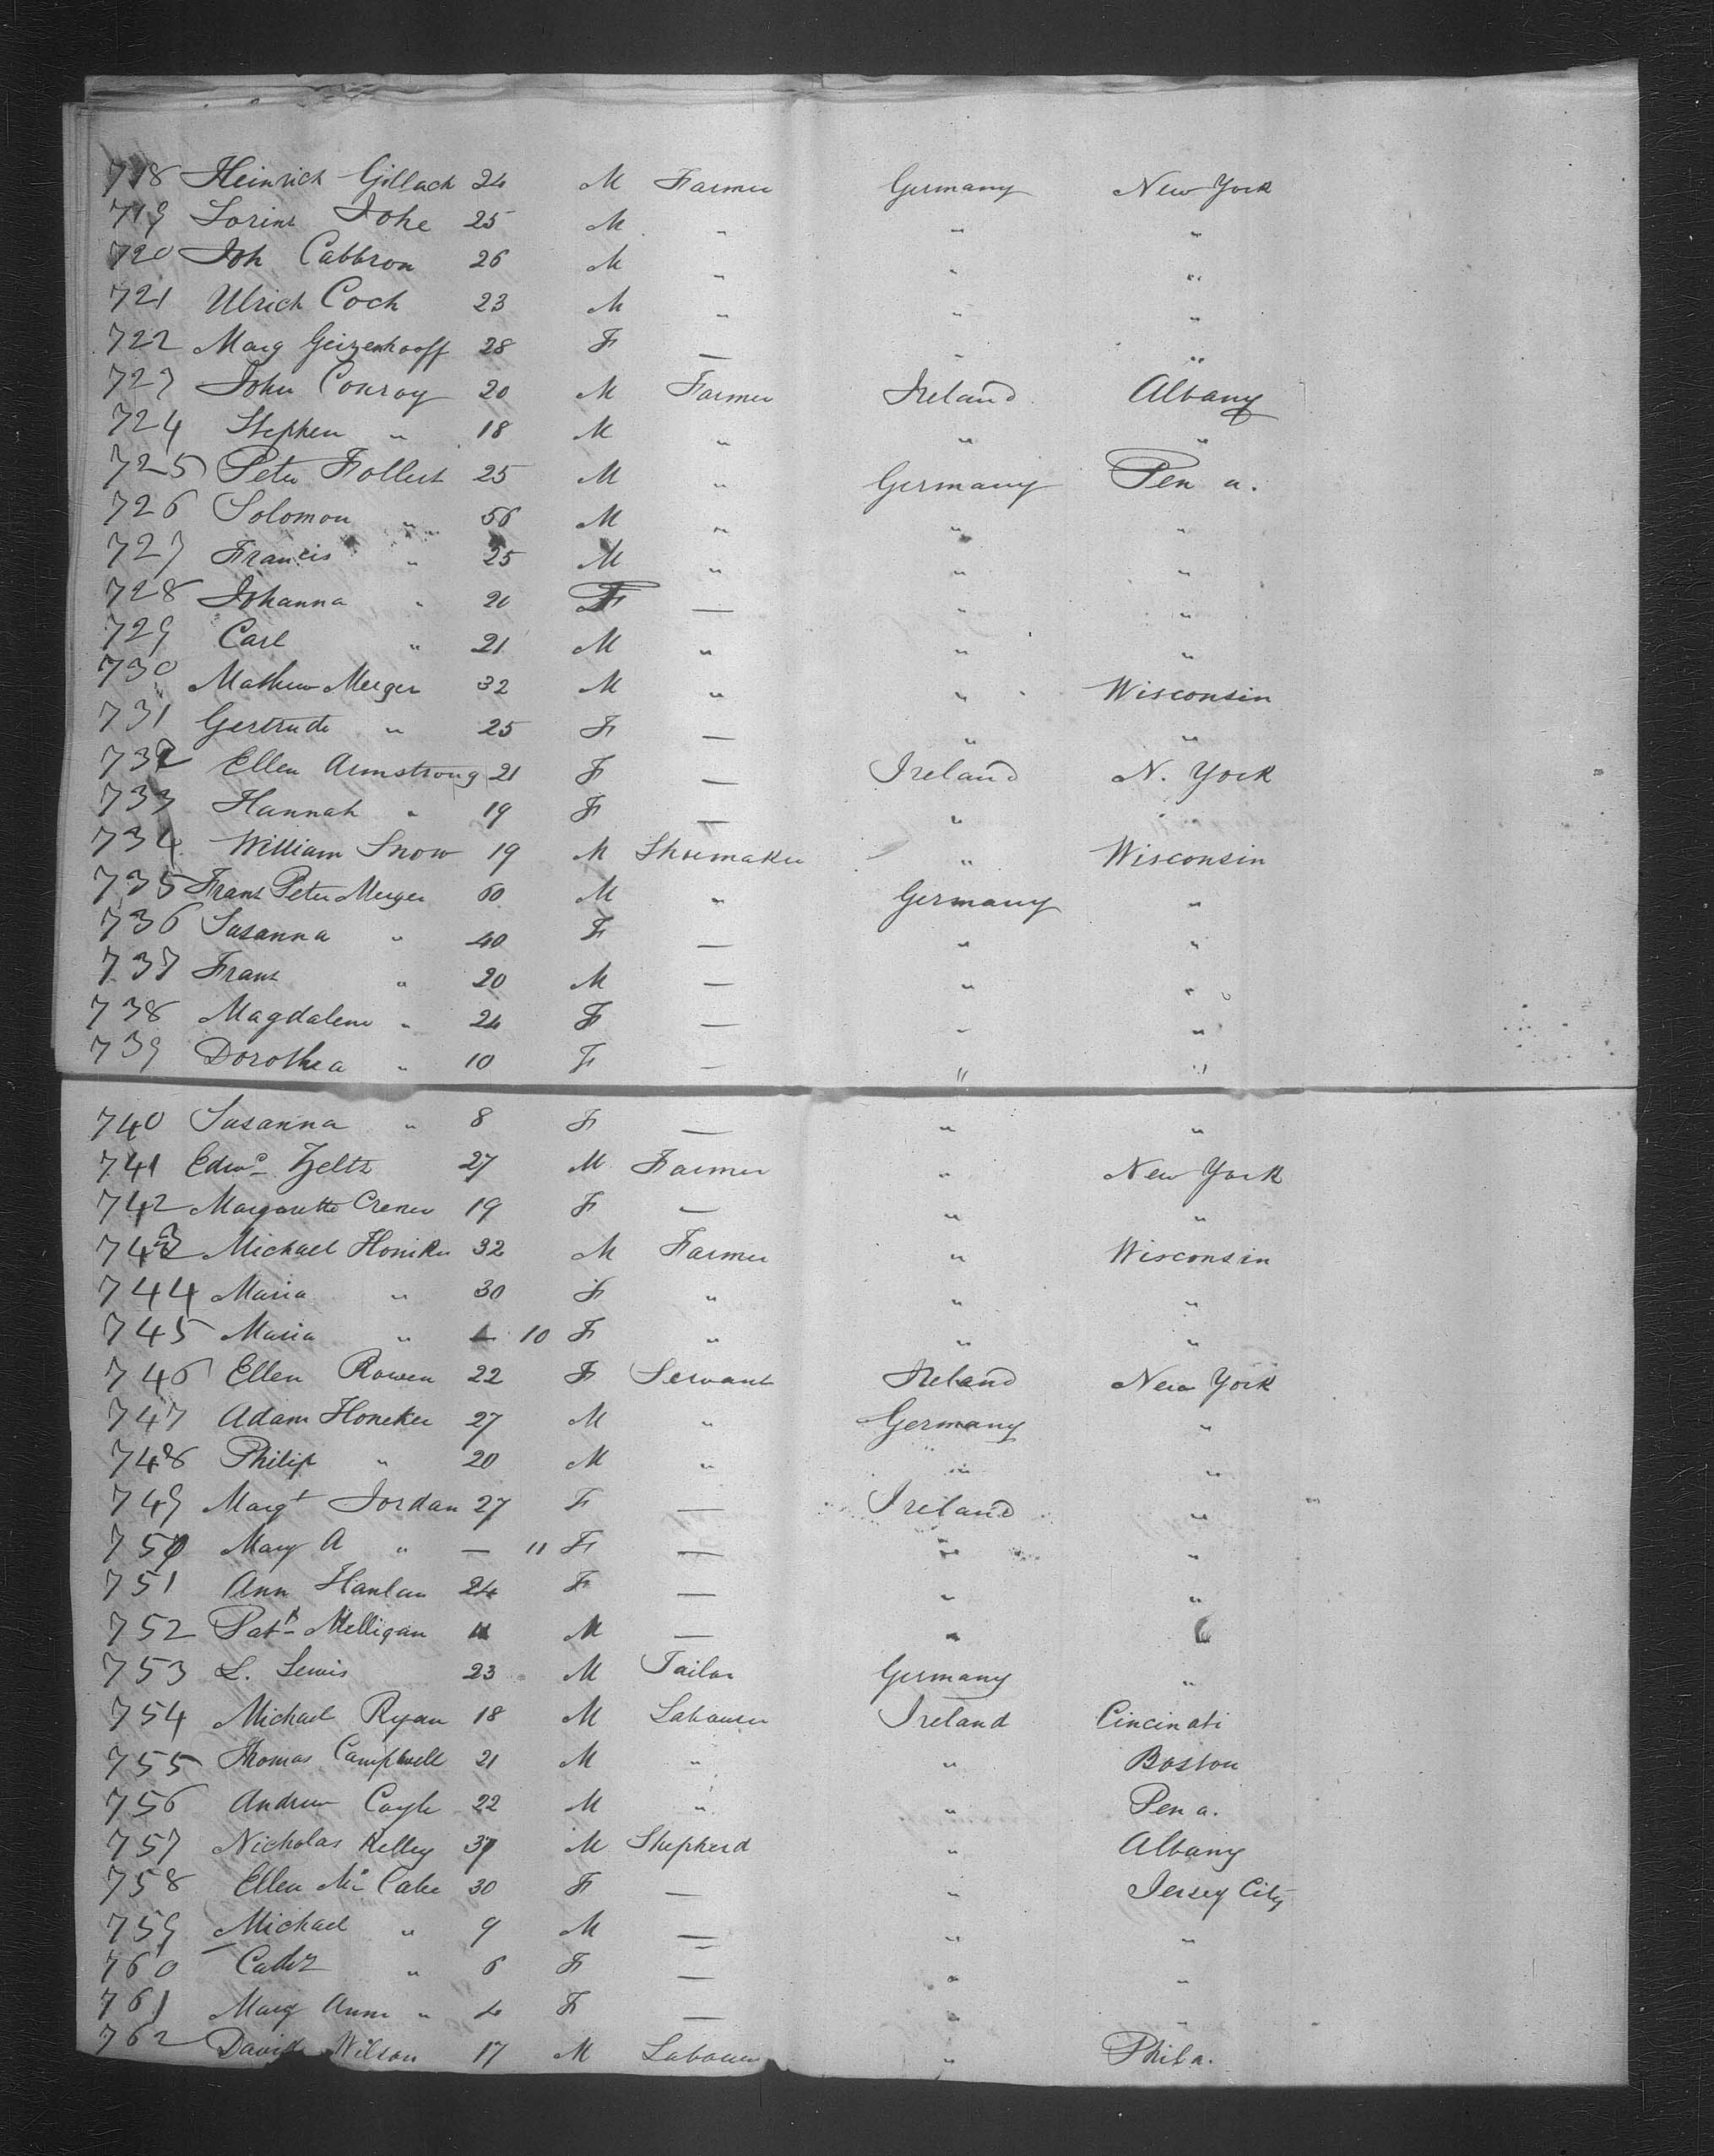 718 Heinrich Gillach 24 M Farmer Germany New York
719 Lorinz Johe 25 M " " "
720 Joh Cabbron 26 M " " "
721 Ulrich Coch 23 M " " "
722 Marg Geizenhooff 28 F — " "
723 John Conroy 20 M Farmer Ireland Albany
724 Stephen " 18 M " " "
725 Peter Follert 25 M " Germany Pen a.
726 Solomon " 56 M " " "
727 Francis " 25 M " " "
728 Johanna " 20 F — " "
729 Carl " 21 M " " "
730 Mathew Meeger 32 M " " Wisconsin
731 Gertrude " 25 F — " "
732 Ellen Armstrong 21 F — Ireland N. York
733 Hannah " 19 F — " "
734 William Snow 19 M Shoemaker " Wisconsin
735 Franz Peter Meeger 60 M " Germany "
736 Susanna " 40 F — " "
737 Franz " 20 M — " "
738 Magdalena " 24 F — " "
739 Dorothea " 10 F — " "
740 Susanna " 8 F — " "
741 Edwd Zeltz 27 M Farmer " New York
742 Margarette Crener 19 F — " "
743 Michael Honiker 32 M Farmer " Wisconsin
744 Maria " 30 F " " "
745 Maria " 10 F " " "
746 Ellen Rowen 22 F Servant Ireland New York
747 Adam Honeker 27 M " Germany "
748 Philip " 20 M " " "
749 Margt Jordan 27 F — Ireland "
750 Mary A " — 11 F — " "
751 Ann Hanlan 24 F — " "
752 Patk Melligan 11 M — " "
753 L. Lewis 23 M Tailor Germany "
754 Michael Ryan 18 M Labourer Ireland Cincinati
755 Thomas Campbell 21 M " " Boston
756 Andrew Coyle 22 M " " Pen a.
757 Nicholas Kelley 37 M Shepherd " Albany
758 Ellen Mc Cabe 30 F — " Jersey City
759 Michael " 9 M — " "
760 Cathr " 6 F — " "
761 Mary Anne " 4 F — " "
762 David Wilson 17 M Labourer " Phila.